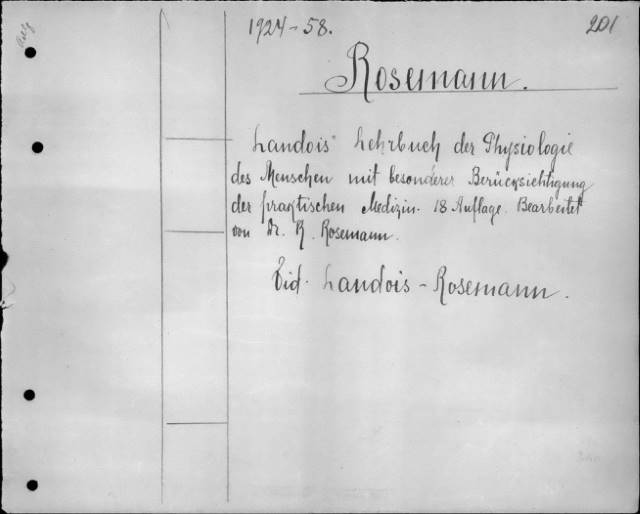 1924-58.
201
Rosemann.
Landois' Lehrbuch der Physiologie
des Menschen mit besonderer Berücksichtigung
der praktischen Medizin. 18 Auflage. Bearbeitet
von Dr. R. Rosemann.
Vid. Landois - Rosemann.